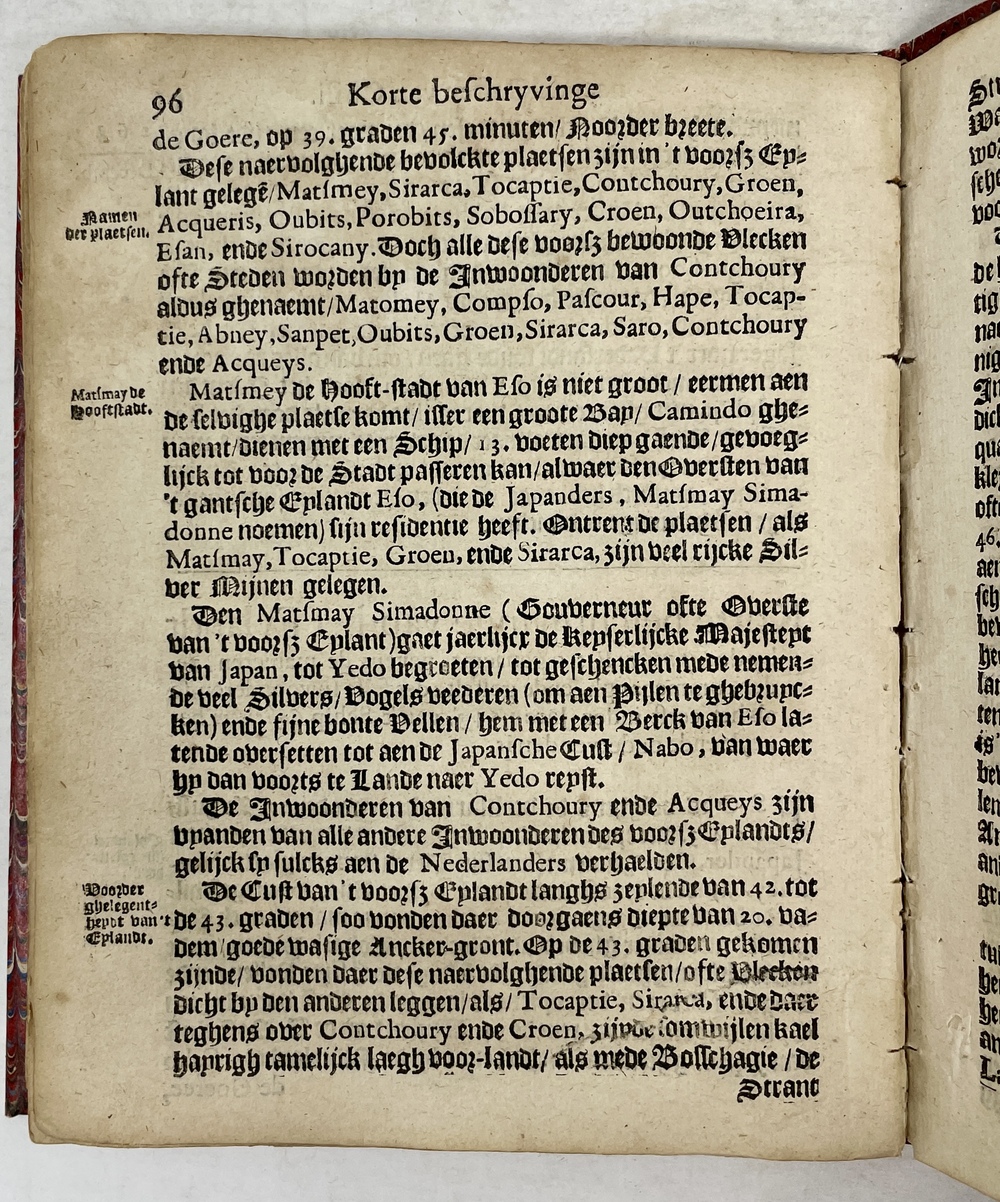 96
Korte beſchryvinge
de Goere, op 39. graden 45. minuten/ Noorder breete.
Deſe naervolghende bevolckte plaetſen zijn in 't voorſz Ey⸗
lant gelegē/Matſmey,Sirarca,Tocaptie,Contchoury,Groen,
Namen
der plaetſen.
Acqueris, Oubits,Porobits, Soboſſary, Croen, Outchoeira,
Eſan, ende Sirocany. Doch alle deſe voorſz bewoonde Vlecken
ofte Steden worden by de Inwoonderen van Contchoury
aldus ghenaemt/Matomey, Compſo, Paſcour, Hape, Tocap-
tie, Abney,Sanpet,Oubits,Groen,Sirarca, Saro, Contchoury
ende Acqueys.
Matſmay de
Hooftſtadt.
Matſmey de Hooft-ſtadt van Eſo is niet groot / eermen aen
de ſelvighe plaetſe komt/ iſſer een groote Bay/ Camindo ghe⸗
naemt/dienen met een Schip/ 13. voeten diep gaende/gevoeg⸗
lijck tot voor de Stadt paſſeren kan/alwaer den Overſten van
't gantſche Eylandt Eſo, (die de Japanders, Matſmay Sima-
donne noemen) ſijn reſidentie heeft. Ontrent de plaetſen / als
Matſmay,Tocaptie, Groen, ende Sirarca, zijn veel rijcke Sil⸗
ver Mijnen gelegen.
Den Matſmay Simadonne (Gouverneur ofte Overſte
van 't voorſz Eylant)gaet jaerlijcx de Keyſerlijcke Majeſteyt
van Japan, tot Yedo begroeten / tot geſchencken mede nemen⸗
de veel Silvers/Vogels veederen (om aen Pijlen te ghebruyc⸗
ken) ende fijne bonte Vellen / hem met een Berck van Eſo la⸗
tende overſetten tot aen de Japanſche Cuſt / Nabo, van waer
hy dan voorts te Lande naer Yedo reyſt.
De Inwoonderen van Contchoury ende Acqueys zijn
vyanden van alle andere Inwoonderen des voorſz Eylandts/
gelijck ſy ſulcks aen de Nederlanders verhaelden.
Voorder
ghelegent⸗
heydt van't
Eylandt.
De Cuſt van 't voorſz Eylandt langhs zeylende van 42. tot
de 43. graden / ſoo vonden daer doorgaens diepte van 20. va⸗
dem/goede waſige Ancker-gront. Op de 43. graden gekomen
zijnde/ vonden daer deſe naervolghende plaetſen/ofte Vlecken
dicht by den anderen leggen/als/ Tocaptie, Sirarca, ende daer
teghens over Contchoury ende Croen, zijnde ſommijlen kael
hayrigh tamelijck laegh voor-landt/ als mede Boſſchagie / de
Strant